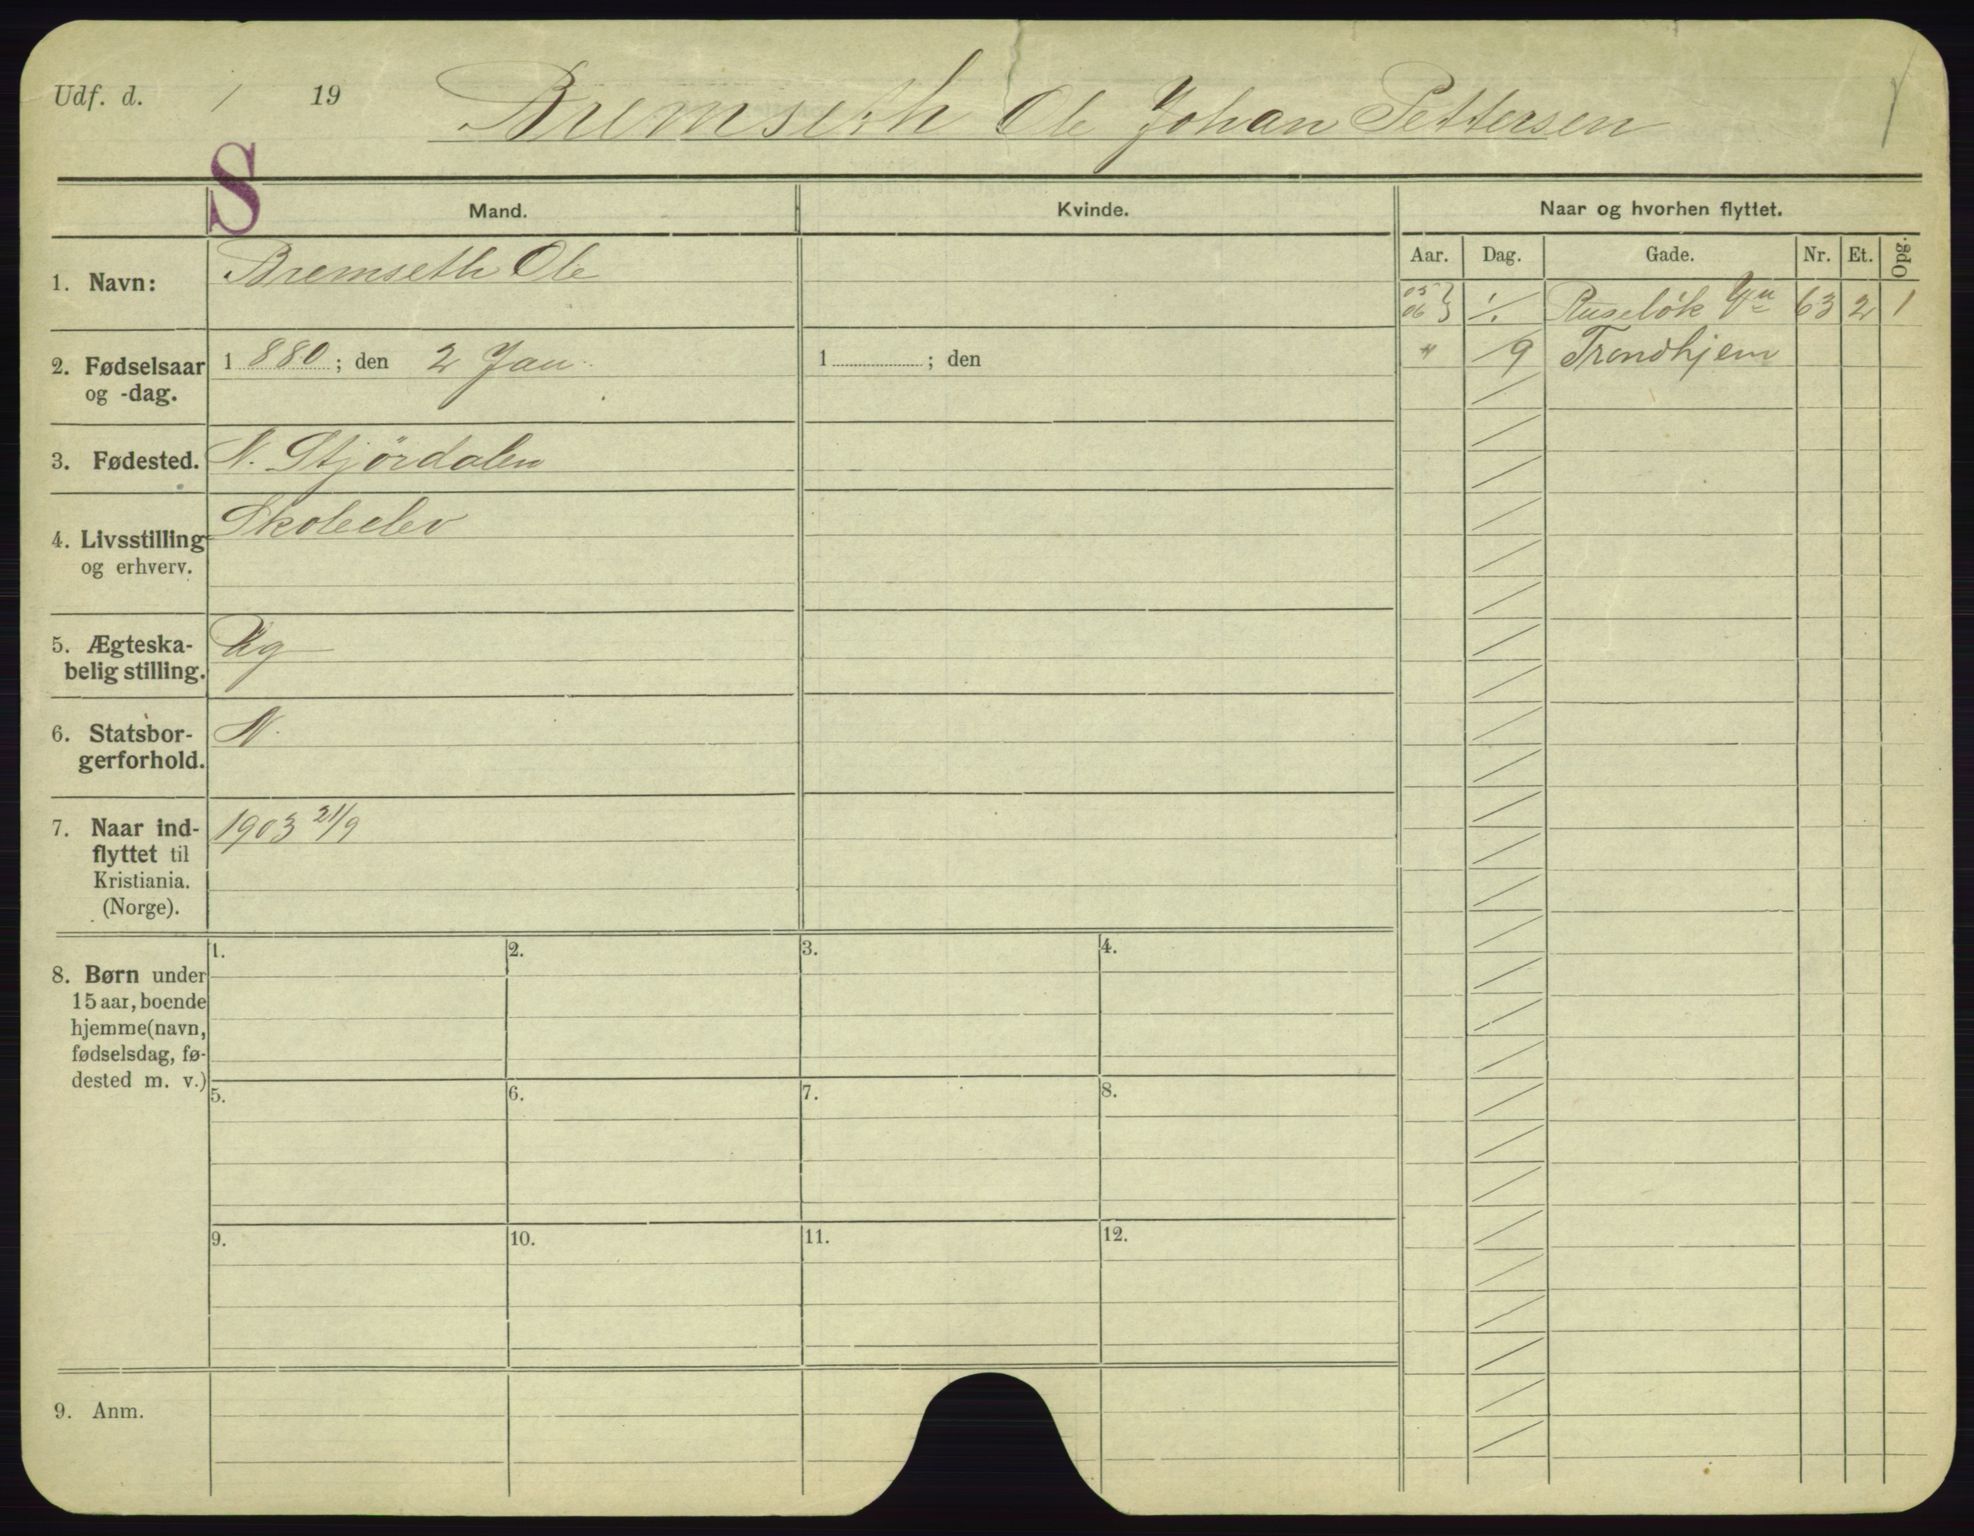 Udf. d. / 19
Bremseth Ole Johan Pettersen
S
Mand.
Kvinde.
Naar og hvorhen flyttet.
Aar. Dag. Gade. Nr. Et. Opg.
1. Navn: Bremseth Ole
05 } 1/1 Ruseløk Vn 63 2 1
06 }
2. Fødselsaar 1 880 ; den 2 Jan. 1 ; den
og -dag.
" /9 Trondhjem
3. Fødested. N. Stjørdalen
4. Livsstilling Skoleelev
og erhverv.
5. Ægteska- Ug
belig stilling.
6. Statsbor- N.
gerforhold.
7. Naar ind- 1903 21/9
flyttet til
Kristiania.
(Norge).
8. Børn under
15 aar, boende
hjemme (navn,
fødselsdag, fø-
dested m. v.)
1. 2. 3. 4.
5. 6. 7. 8.
9. 10. 11. 12.
9. Anm.